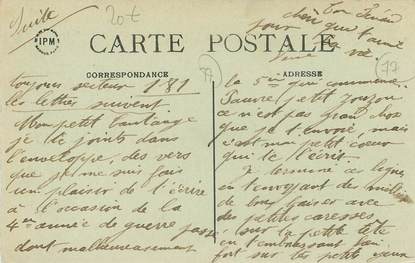 Suite
20€
IPM
CARTE POSTALE
CORRESPONDANCE
ADRESSE
77
77
toujours secteur 181
les lettres suivent.
Mon petit
je te joints dans
l'enveloppe, des vers
que je me suis fais
un plaisir de t'écrire
à l'occasion de la
4eme année de guerre passé
dont malheureusement
la 5eme qui commence.
Pauvre petit
ce n'est pas grand chose
que je t'envoie, mais
c'est mon petit coeur
qui te l'écrit.
Je termine ces lignes
en t'envoyant des milliers
de bons baiser avec
des petites caresses
sur ta petite tête
en t'embrassant bien
fort sur tes petits yeux
Ton
chéri qui t'aime
pour la vie.